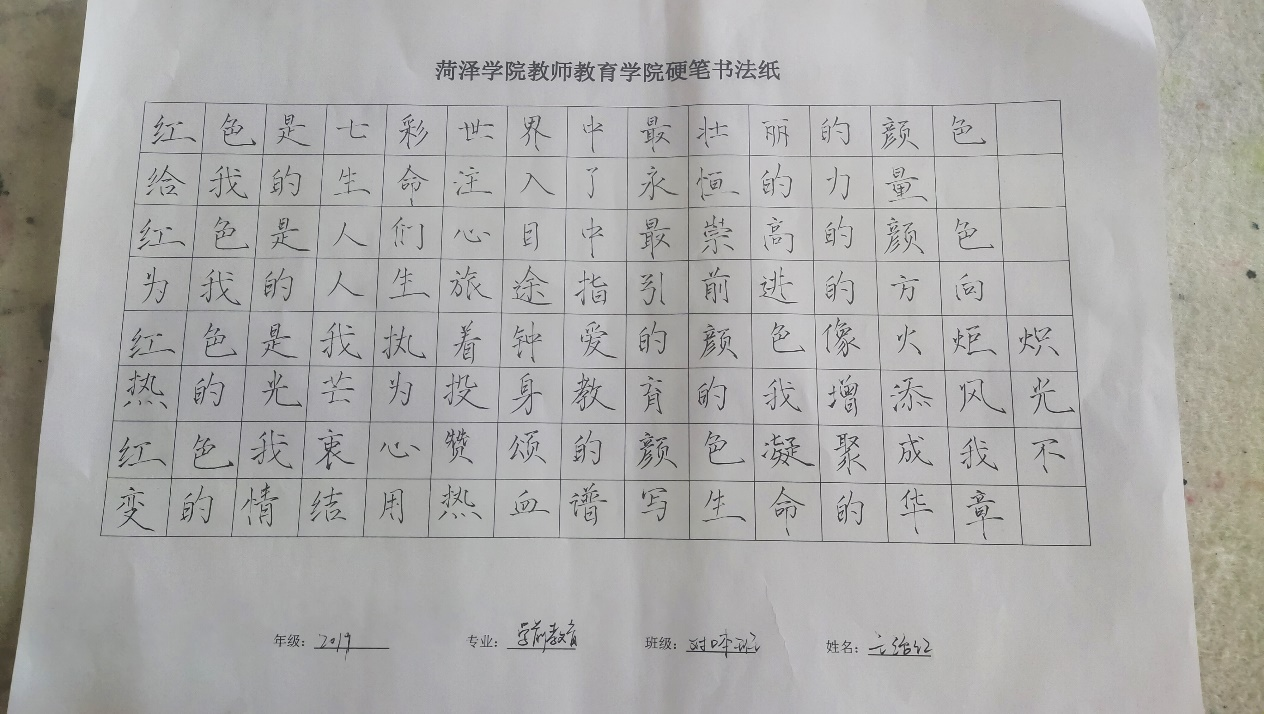 菏泽学院教师教育学院硬笔书法纸
红色是七彩世界中最壮丽的颜色
给我的生命注入了永恒的力量
红色是人们心目中最崇高的颜色
为我的人生旅途指引前进的方向
红色是我执着钟爱的颜色像火炬炽
热的光芒为投身教育的我增添风光
红色我衷心赞颂的颜色凝聚成我不
变的情结用热血谱写生命的华章
年级：2019 专业：学前教育 班级：对口本班 姓名：